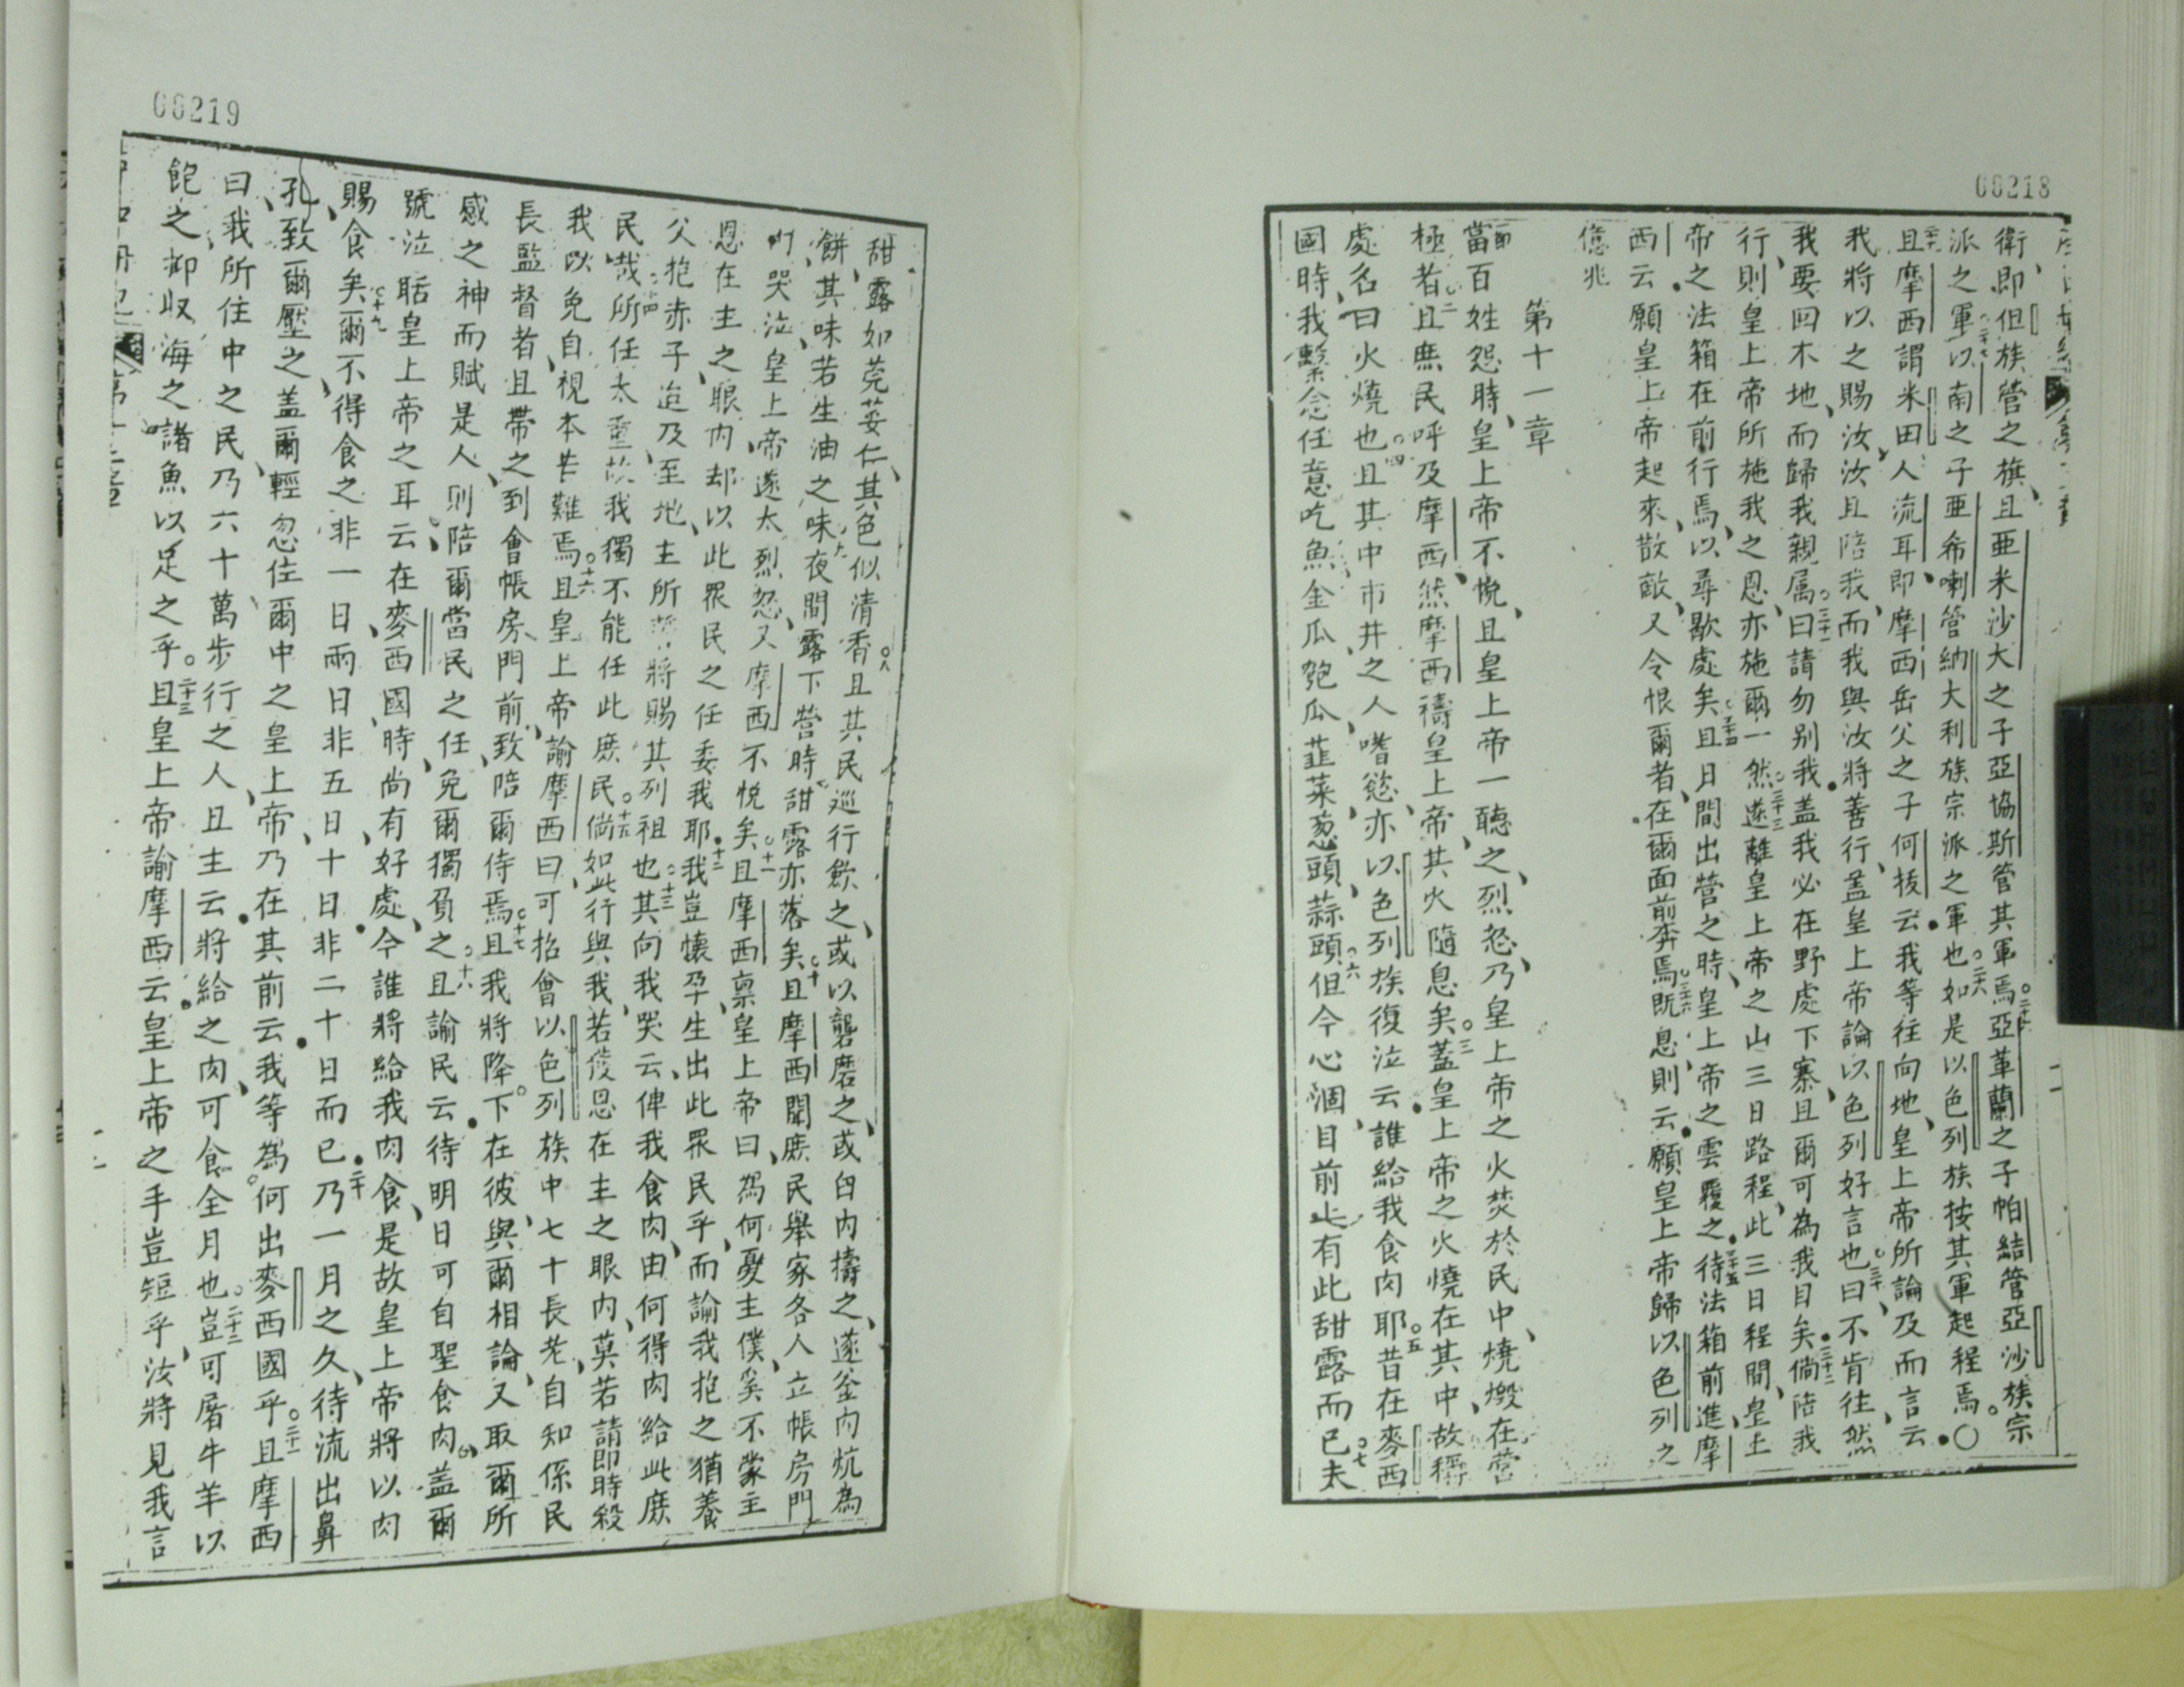 00218
衛即但族營之旗且亞米沙大之子亞協斯管其軍焉二十五亞革蘭之子帕結管亞沙族宗
派之軍二十七以南之子亞希喇管納大利族宗派之軍也二十八如是以色列族按其軍起程焉〇
二十九且摩西謂米田人流耳即摩西岳父之子何拔云我等往向地皇上帝所論及而言云
我將以之賜汝汝且陪我而我與汝將善行盖皇上帝論以色列好言也三十曰不肯往然
我要回本地而歸我親属三十一曰請勿别我盖我必在野處下寨且爾可為我目矣三十二倘陪我
行則皇上帝所施我之恩亦施爾一然三十三遂離皇上帝之山三日路程此三日程間皇上
帝之法箱在前行焉以尋歇處矣三十四且日間出營之時皇上帝之雲覆之三十五待法箱前進摩
西云願皇上帝起來散敵又令恨爾者在爾面前奔焉三十六既息則云願皇上帝歸以色列之
億兆
第十一章
一節當百姓怨時皇上帝不悅且皇上帝一聽之烈忿乃皇上帝之火焚於民中燒燬在營
極者二且庶民呼及摩西然摩西禱皇上帝其火隨息矣三蓋皇上帝之火燒在其中故稱
處名曰火燒也四且其中市井之人嗜慾亦以色列族復泣云誰給我食肉耶五昔在麥西
國時我繫念任意吃魚金瓜匏瓜韮菜葱頭蒜頭六但今心涸目前止有此甜露而已七夫
00219
甜露如莞荽仁其色似清香八且其民巡行歛之或以礱磨之或臼内擣之遂釜内炕為
餅其味若生油之味九夜間露下營時甜露亦落矣十且摩西聞庶民舉家各人立帳房門
哭泣皇上帝遂太烈忿又摩西不悅矣十一且摩西禀皇上帝曰為何憂主僕奚不蒙主
恩在主之眼内却以此眾民之任委我耶十二我豈懷孕生出此眾民乎而諭我抱之猶養
父抱赤子迨及至地主所誓將賜其列祖也十三其向我哭云俾我食肉由何得肉給此庶
民哉十四所任太重故我獨不能任此庶民十五倘如此行與我若獲恩在主之眼内莫若請即時殺
我以免自視本苦難焉十六且皇上帝諭摩西曰可招會以色列族中七十長老自知係民
長監督者且帶之到會帳房門前致陪爾侍焉十七且我將降下在彼與爾相論又取爾所
感之神而賦是人則陪爾當民之任免爾獨負之十八且諭民云待明日可自聖食肉盖爾
號泣聒皇上帝之耳云在麥西國時尚有好處今誰將給我肉食是故皇上帝將以肉
賜食矣十九爾不得食之非一日兩日非五日十日非二十日而已二十乃一月之久待流出鼻
孔致爾壓之盖爾輕忽住爾中之皇上帝乃在其前云我等為何出麥西國乎二十一且摩西
曰我所住中之民乃六十萬步行之人且主云將給之肉可食全月也二十二豈可屠牛羊以
飽之抑収海之諸魚以足之乎二十三且皇上帝諭摩西云皇上帝之手豈短乎汝將見我言